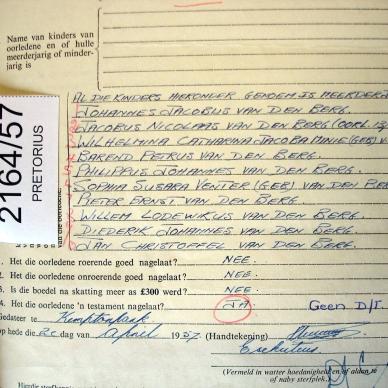 Name van kinders van
oorledene en of hulle
meerderjarig of minder-
jarig is
AL DIE KINDERS HIERONDER GENOEM IS MEERDERJ
JOHANNES JACOBUS VAN DEN BERG.
JACOBUS NICOLAAS VAN DEN BERG (OORL.
WILHELMINA CATHARINA JACOBA MINIE (GEB) V
BAREND PETRUS VAN DEN BERG.
PHILIPPUS JOHANNES VAN DEN BERG.
SOPHIA SUSARA VENTER (GEB) VAN DEN BE
PIETER ERNST VAN DEN BERG.
WILLEM LODEWIKUS VAN DEN BERG.
DIEDERIK JOHANNES VAN DEN BERG.
JAN CHRISTOFFEL VAN DEN BERG.
2164/57
PRETORIUS
van die oorledene.
1. Het die oorledene roerende goed nagelaat? NEE.
2. Het die oorledene onroerende goed nagelaat? NEE.
3. Is die boedel na skatting meer as £300 werd? NEE.
4. Het die oorledene 'n testament nagelaat? JA Geen D/T.
Gedateer te Kemptonpark
op hede die dag van April 1957. (Handtekening)
Exekuteur
(Vermeld in watter hoedanigheid en of aldan
of naby sterfplek)